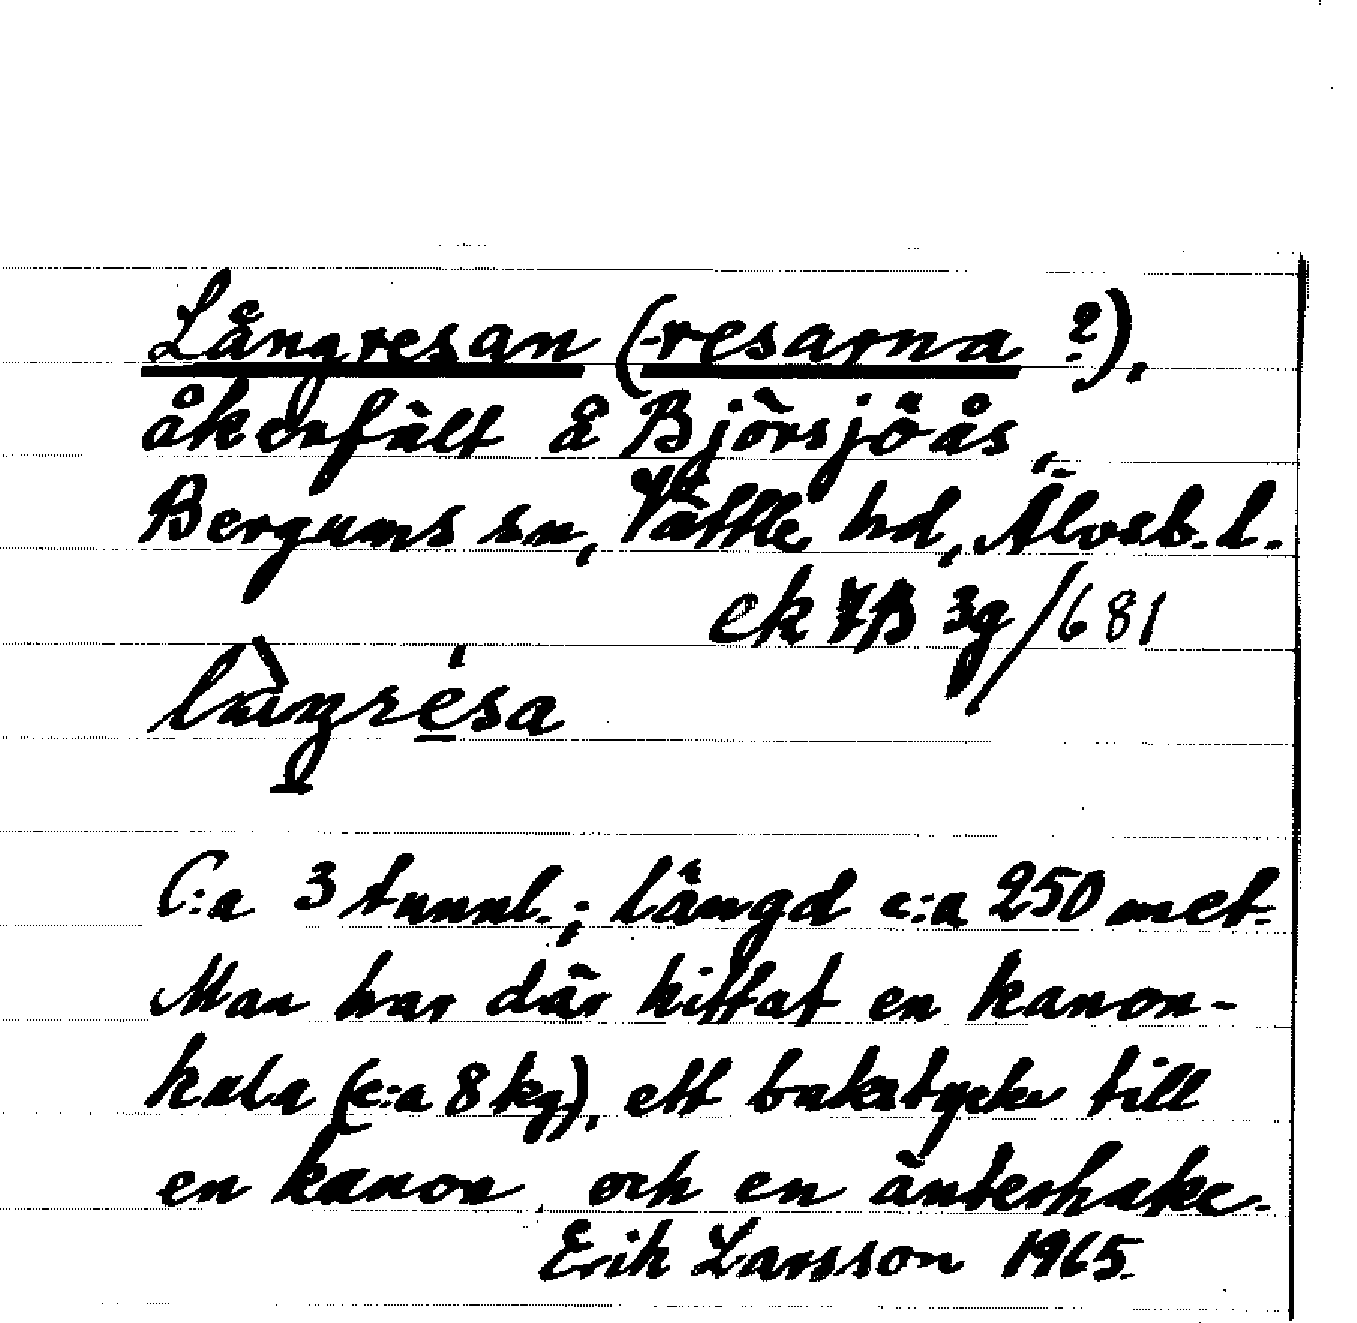 Långresan (-resarna ?),
åkerfält å Björsjöås,
Bergums sn, Vättle hd, Älvsb. l.
ek 7B 3g/681
làŋrésa
C:a 3 tunnl.; längd c:a 250 met.
Man har där hittat en kanon-
kula (c:a 8 kg), ett bakstycke till
en kanon, och en änterhake.
Erik Larsson 1965.